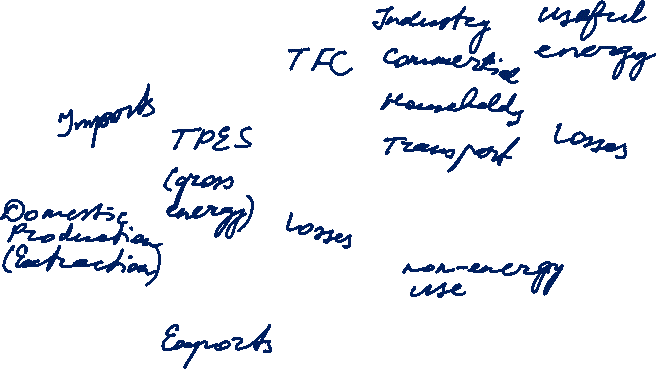 Imports
Domestic
Production
(Extraction)
TPES
(gross
energy)
Exports
TFC
Losses
Industry
Commertial
Households
Transport
non-energy
use
useful
energy
Losses